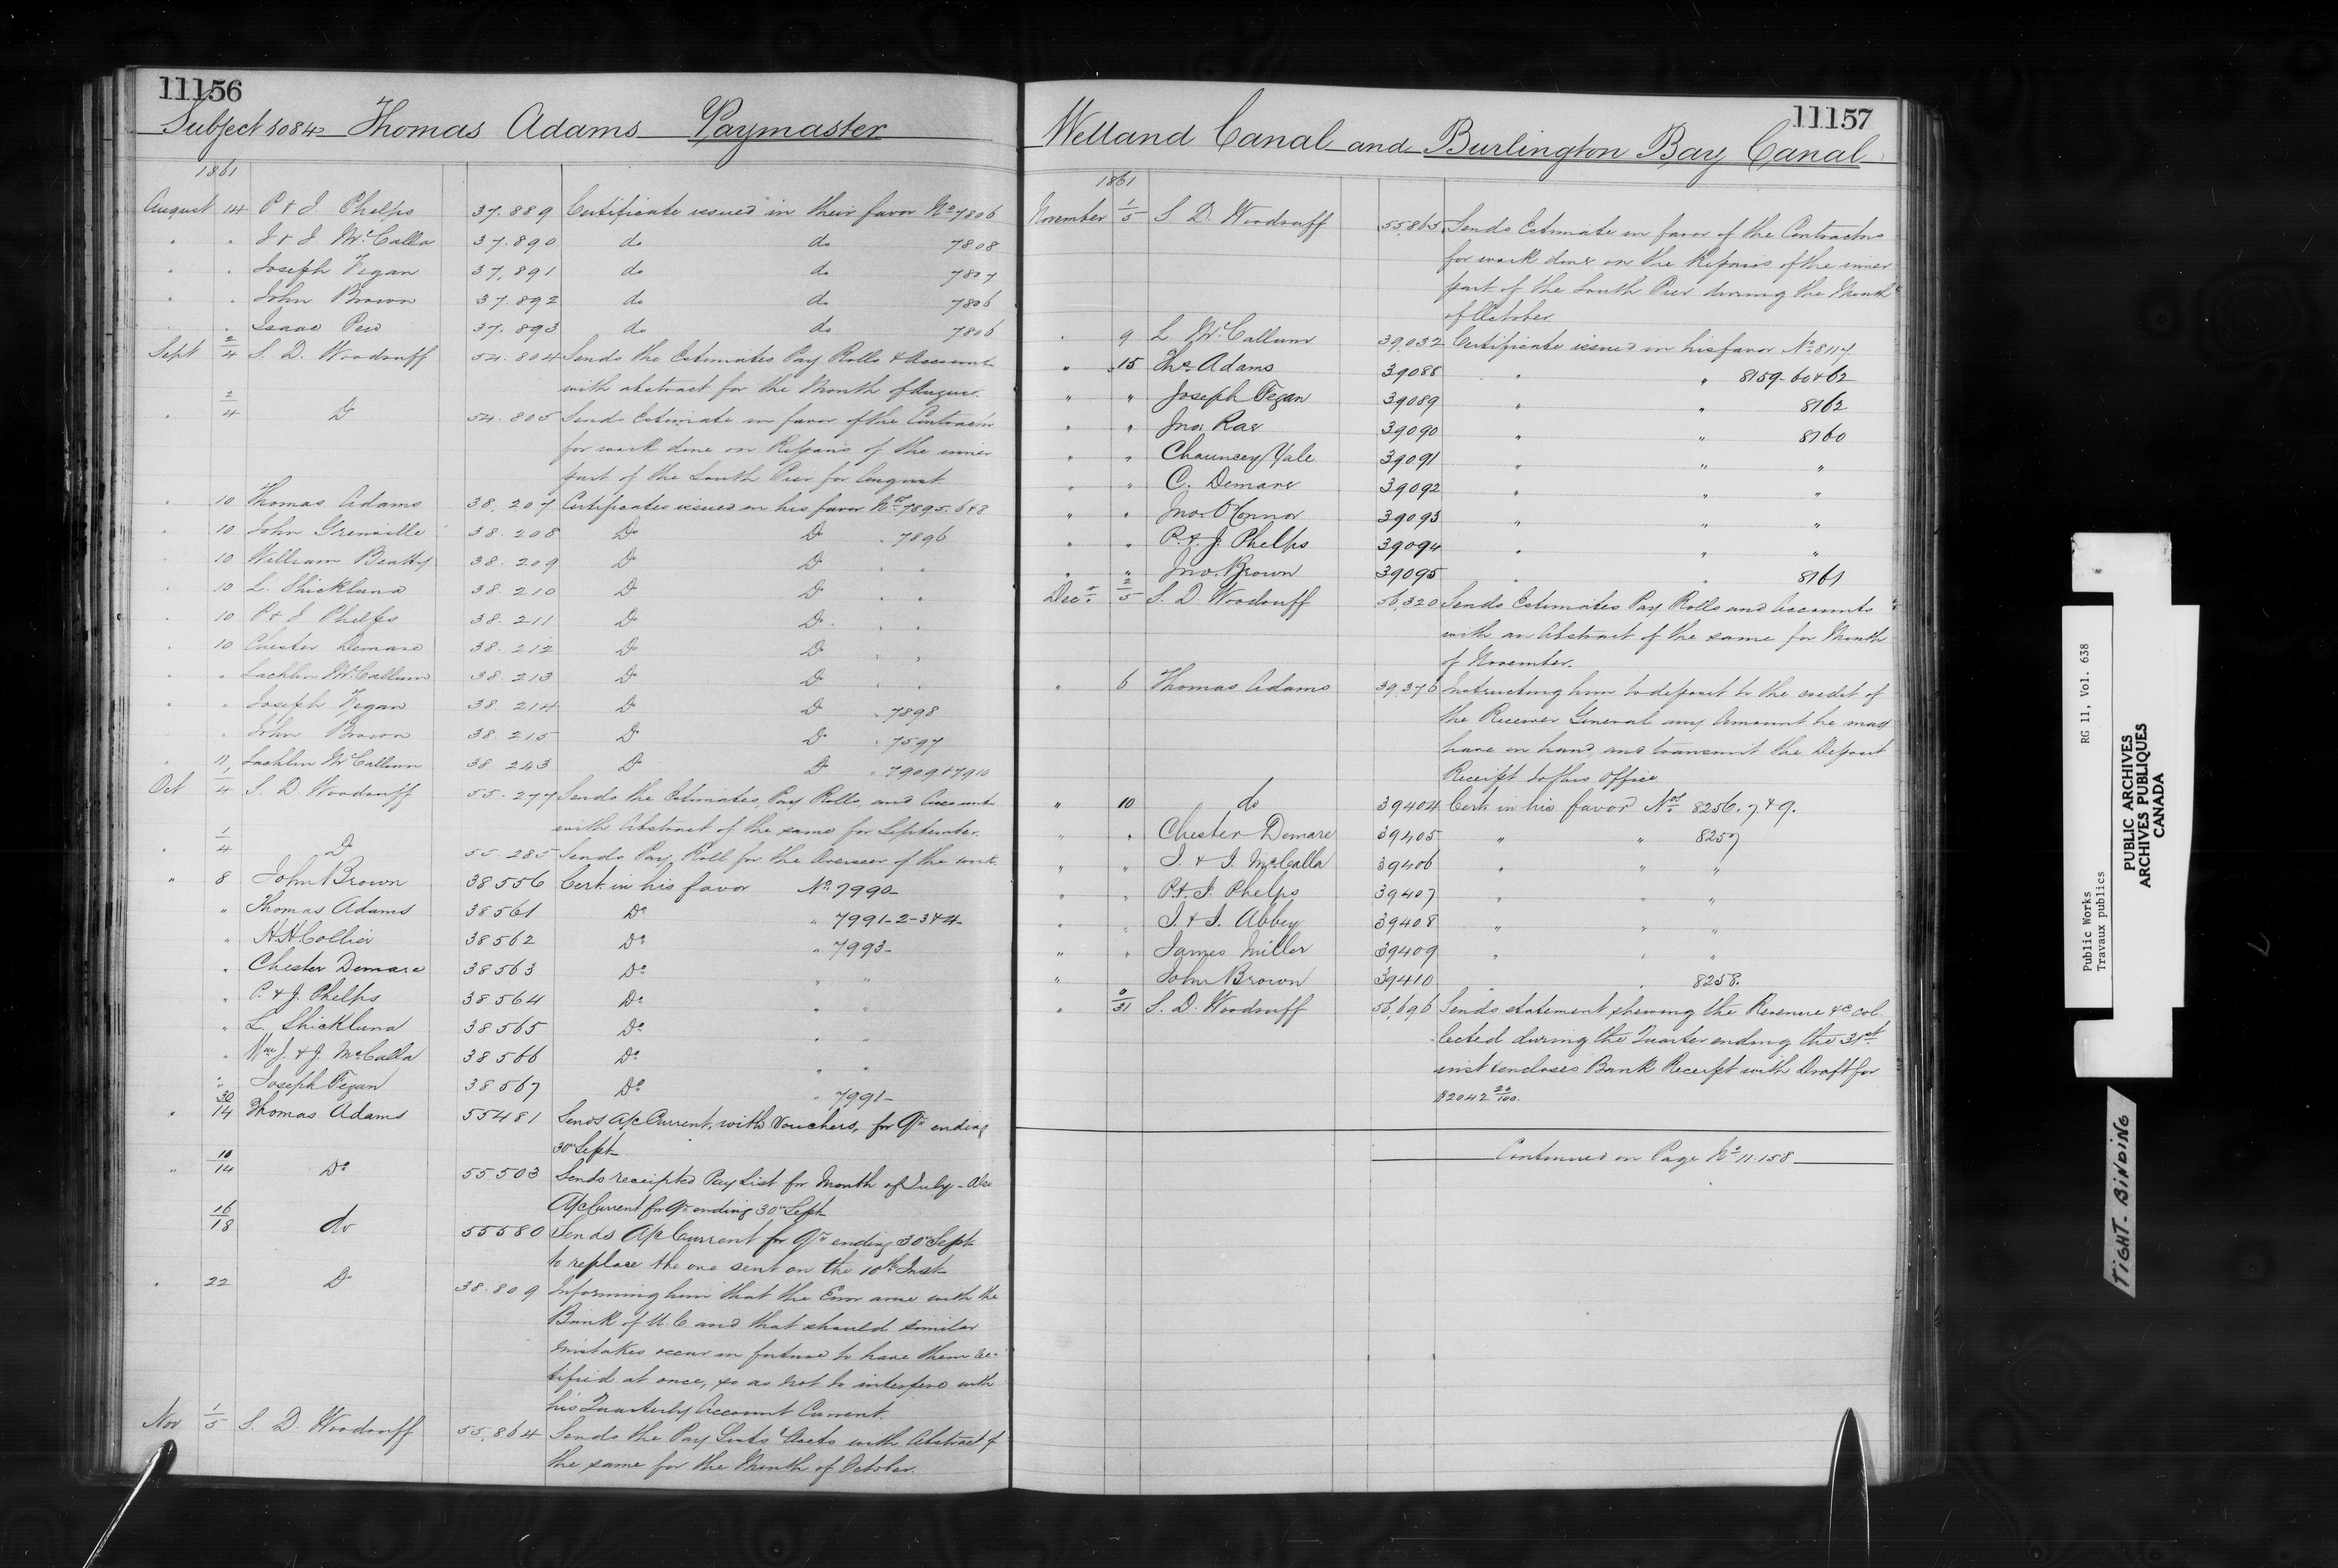 11156
Subject 1084 Thomas Adams Paymaster
1861
August 14 P & J Phelps 37.889 Certificate issued in their favor No 7806
" " J & J McCalla 37.890 do do 7808
" " Joseph Fegan 37,891 do do 7807
" " John Brown 37.892 do do 7806
" Isaac Pew 37.893 do do 7806
Sept 2/4 S. D. Woodruff 54.804 Sends the Estimates Pay Rolls & Accounts
with abstract for the Month of August.
" 2/4 Do 54.805 Sends Estimate in favor of the Contractor
for work done on Repairs of the inner
part of the South Pier for August
" 10 Thomas Adams 38,207 Certificates issued in his favor Nos 7895.6&8
" 10 John Grenville 38.208 Do Do " 7896
" 10 William Beatty 38.209 Do Do " "
" 10 L. Shickluna 38.210 Do Do " "
" 10 P & J Phelps 38.211 Do Do " "
" 10 Chester Demare 38.212 Do Do " "
" " Lachlin McCallum 38.213 Do Do " "
" " Joseph Fegan 38.214 Do Do " 7898
" John Brown 38.215 Do Do " 7597
" 11 Lachlin McCallum 38.243 Do Do " 7909&7910
Oct 1/4 S. D. Woodruff 55.277 Sends the Estimates, Pay Rolls, and Accounts
with Abstract of the same for September.
" 1/4 Do 55.285 Sends Pay Roll for the Overseer of the work.
" 8 John Brown 38556 Cert. in his favor No 7990-
" Thomas Adams 38561 Do " 7991-2-3&4-
" H H Collier 38562 Do " 7993-
" Chester Demare 38563 Do " "
" P. & J. Phelps 38564 Do " "
" L. Shickluna 38565 Do " "
" Wm J. & J. McCalla 38566 Do " "
" Joseph Fegan 38567 Do " 7991-
" 30/14 Thomas Adams 55481 Sends A/c Current, with Vouchers, for Qr ending
30 Sept-
" 10/14 Do 55503 Sends receipted Pay List for Month of July - Also
A/c Current for Qr ending 30 Sept-
16/18 do 55580 Sends A/c Current for Qr ending 30 Sept-
to replace the one sent on the 10th Inst-
" 22 Do 38.809 Informing him that the Error arose with the
Bank of U.C. and that should similar
mistakes occur in future to have them rec-
tified at once, so as not to interfere with
his Quarterly Account Current.
Nov 1/5 S. D. Woodruff 55,864 Sends the Pay Lists & Accts with Abstract of
the same for the Month of October.
11157
Welland Canal and Burlington Bay Canal
1861
November 1/5 S. D. Woodruff 55,865 Sends Estimate in favor of the Contractors
for work done on the Repairs of the inner
part of the South Pier during the Month
of October.
" 9 L. McCallum 39,032 Certificate issued in his favor No 8117.
" 15 Thos Adams 39088 " " 8159-60&62
" " Joseph Fegan 39089 " " 8162
" " Jno. Rae 39090 " " 8160
" " Chauncey Yale 39091 " " "
" " C. Demare 39092 " " "
" " Jno. O'Connor 39093 " " "
" " P. & J. Phelps 39094 " " "
" " Jno. Brown 39095 " " 8161
Decr 2/5 S. D Woodruff 56,320 Sends Estimates Pay Rolls and Accounts
with an Abstract of the same for Month
of November.
" 6 Thomas Adams 39,376 Instructing him to deposit to the credit of
the Receiver General any Amount he may
have on hand, and transmit the Deposit
Receipt to this Office
" 10 do 39404 Cert. in his favor Nos 8256.7&9.
" " Chester Demare 39405 " " 8257
" " J. & J. McCalla 39406 " " "
" " P. & J. Phelps 39407 " " "
" " J. & J. Abbey 39408 " " "
" " James Miller 39409 " " "
" John Brown 39410 " " 8258.
" 0/31 S. D. Woodruff 56,696 Sends statement shewing the Revenue &c col-
lected during the Quarter ending the 31st
inst & encloses Bank Receipt with Draft for
$2042 20/100.
Continued on Page No 11.158
Public Works RG 11, Vol. 638
Travaux publics
PUBLIC ARCHIVES
ARCHIVES PUBLIQUES
CANADA
TIGHT BINDING